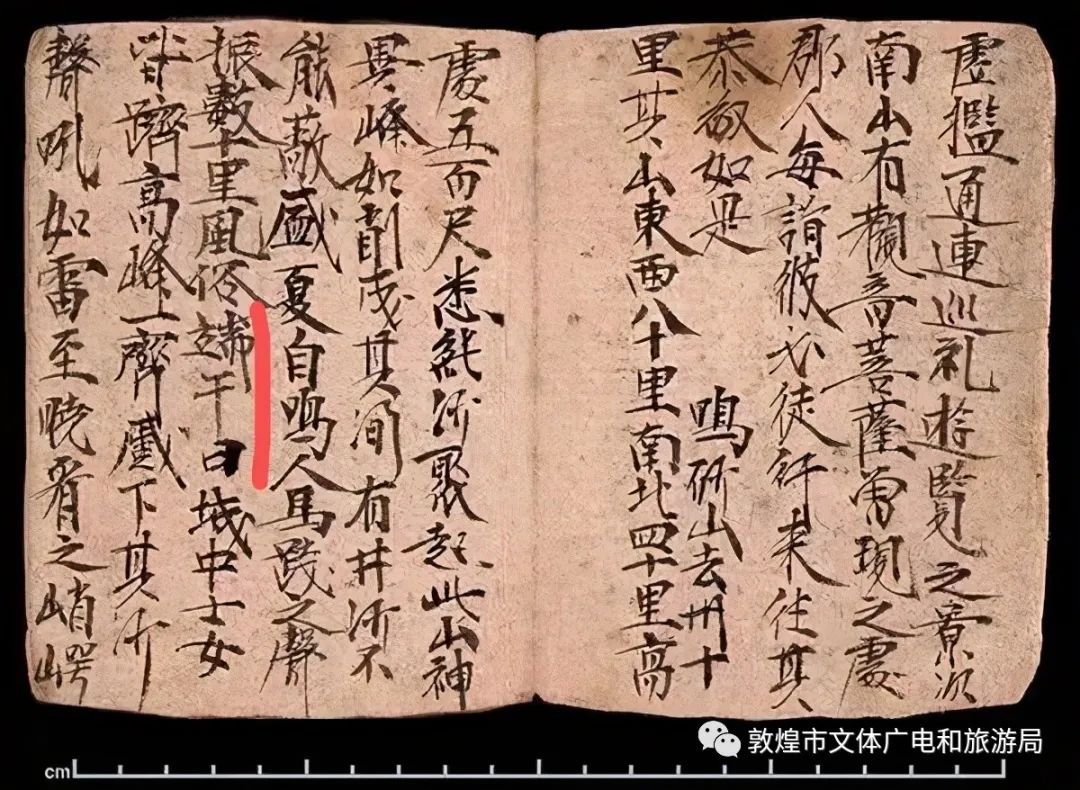 虛檻通連巡礼遊覽之景次
南山有觀音菩薩曾現之處
郡人每詣彼必徒行來往其
恭敬如是　鳴沙山去州十
里其山東西八十里南北四十里高
處五百尺悉純沙聚起此山神
異峰如削成其間有井沙不
能蔽盛夏自鳴人馬踐之聲
振數十里風俗端午日城中士女
皆躋高峰一齊蹙下其沙
聲吼如雷至曉看之峭崿
cm
敦煌市文体广电和旅游局